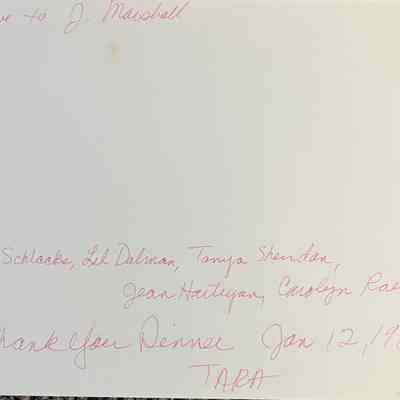 to J. Marshall
Schlacks, Lil Dalman, Tanya Sheridan,
Jean Hartigan, Carolyn Rae
Thank You Dinner Jan 12, 19
TARA